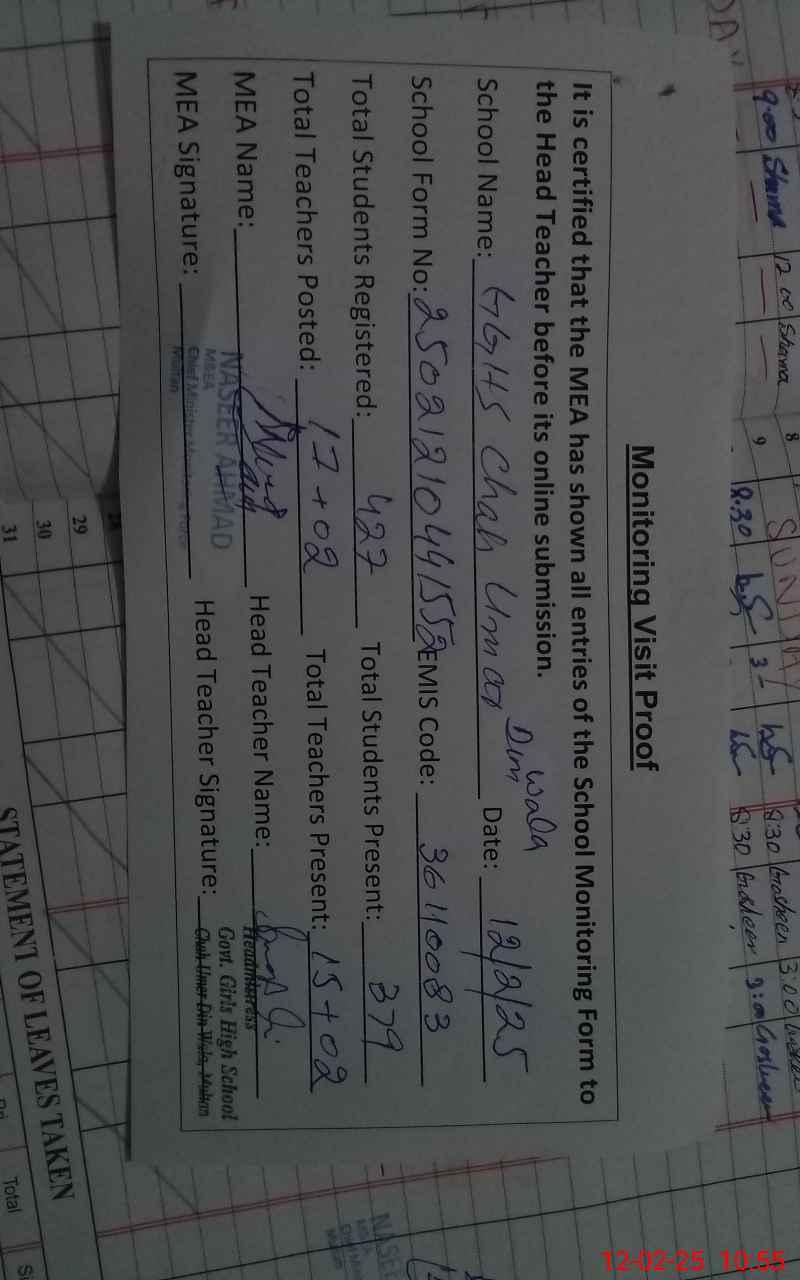 Monitoring Visit Proof
It is certified that the MEA has shown all entries of the School Monitoring Form to
the Head Teacher before its online submission.
School Name: GGHS Chah Umar Din Wala Date: 12/2/25
School Form No: 25021210441552 EMIS Code: 36110083
Total Students Registered: 427 Total Students Present: 379
Total Teachers Posted: 17+02 Total Teachers Present: 15+02
MEA Name: Head Teacher Name:
NASEER AHMAD
M&EA
Chief Minister Monitoring Force
Multan
MEA Signature: Head Teacher Signature:
Headmistress
Govt. Girls High School
Chah Umer Din Wala, Multan
9.00 Shama
12.00 Shama
8
9
SUNDAY
8.30
8:30
3:00
8:30
28
29
30
31
STATEMENT OF LEAVES TAKEN
Total
12-02-25 10:55